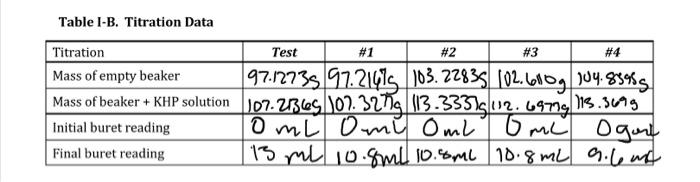 Table I-B. Titration Data
Titration Test #1 #2 #3 #4
Mass of empty beaker 97.1273g 97.2167g 103.2283g 102.6110g
Mass of beaker + KHP solution 107.3277g 113.3337g 112.6977g
Initial buret reading 0 mL 0 mL 0 mL 0 mL
Final buret reading 13 mL 10.8mL 10.8mL 10.8 mL 9.6 mL